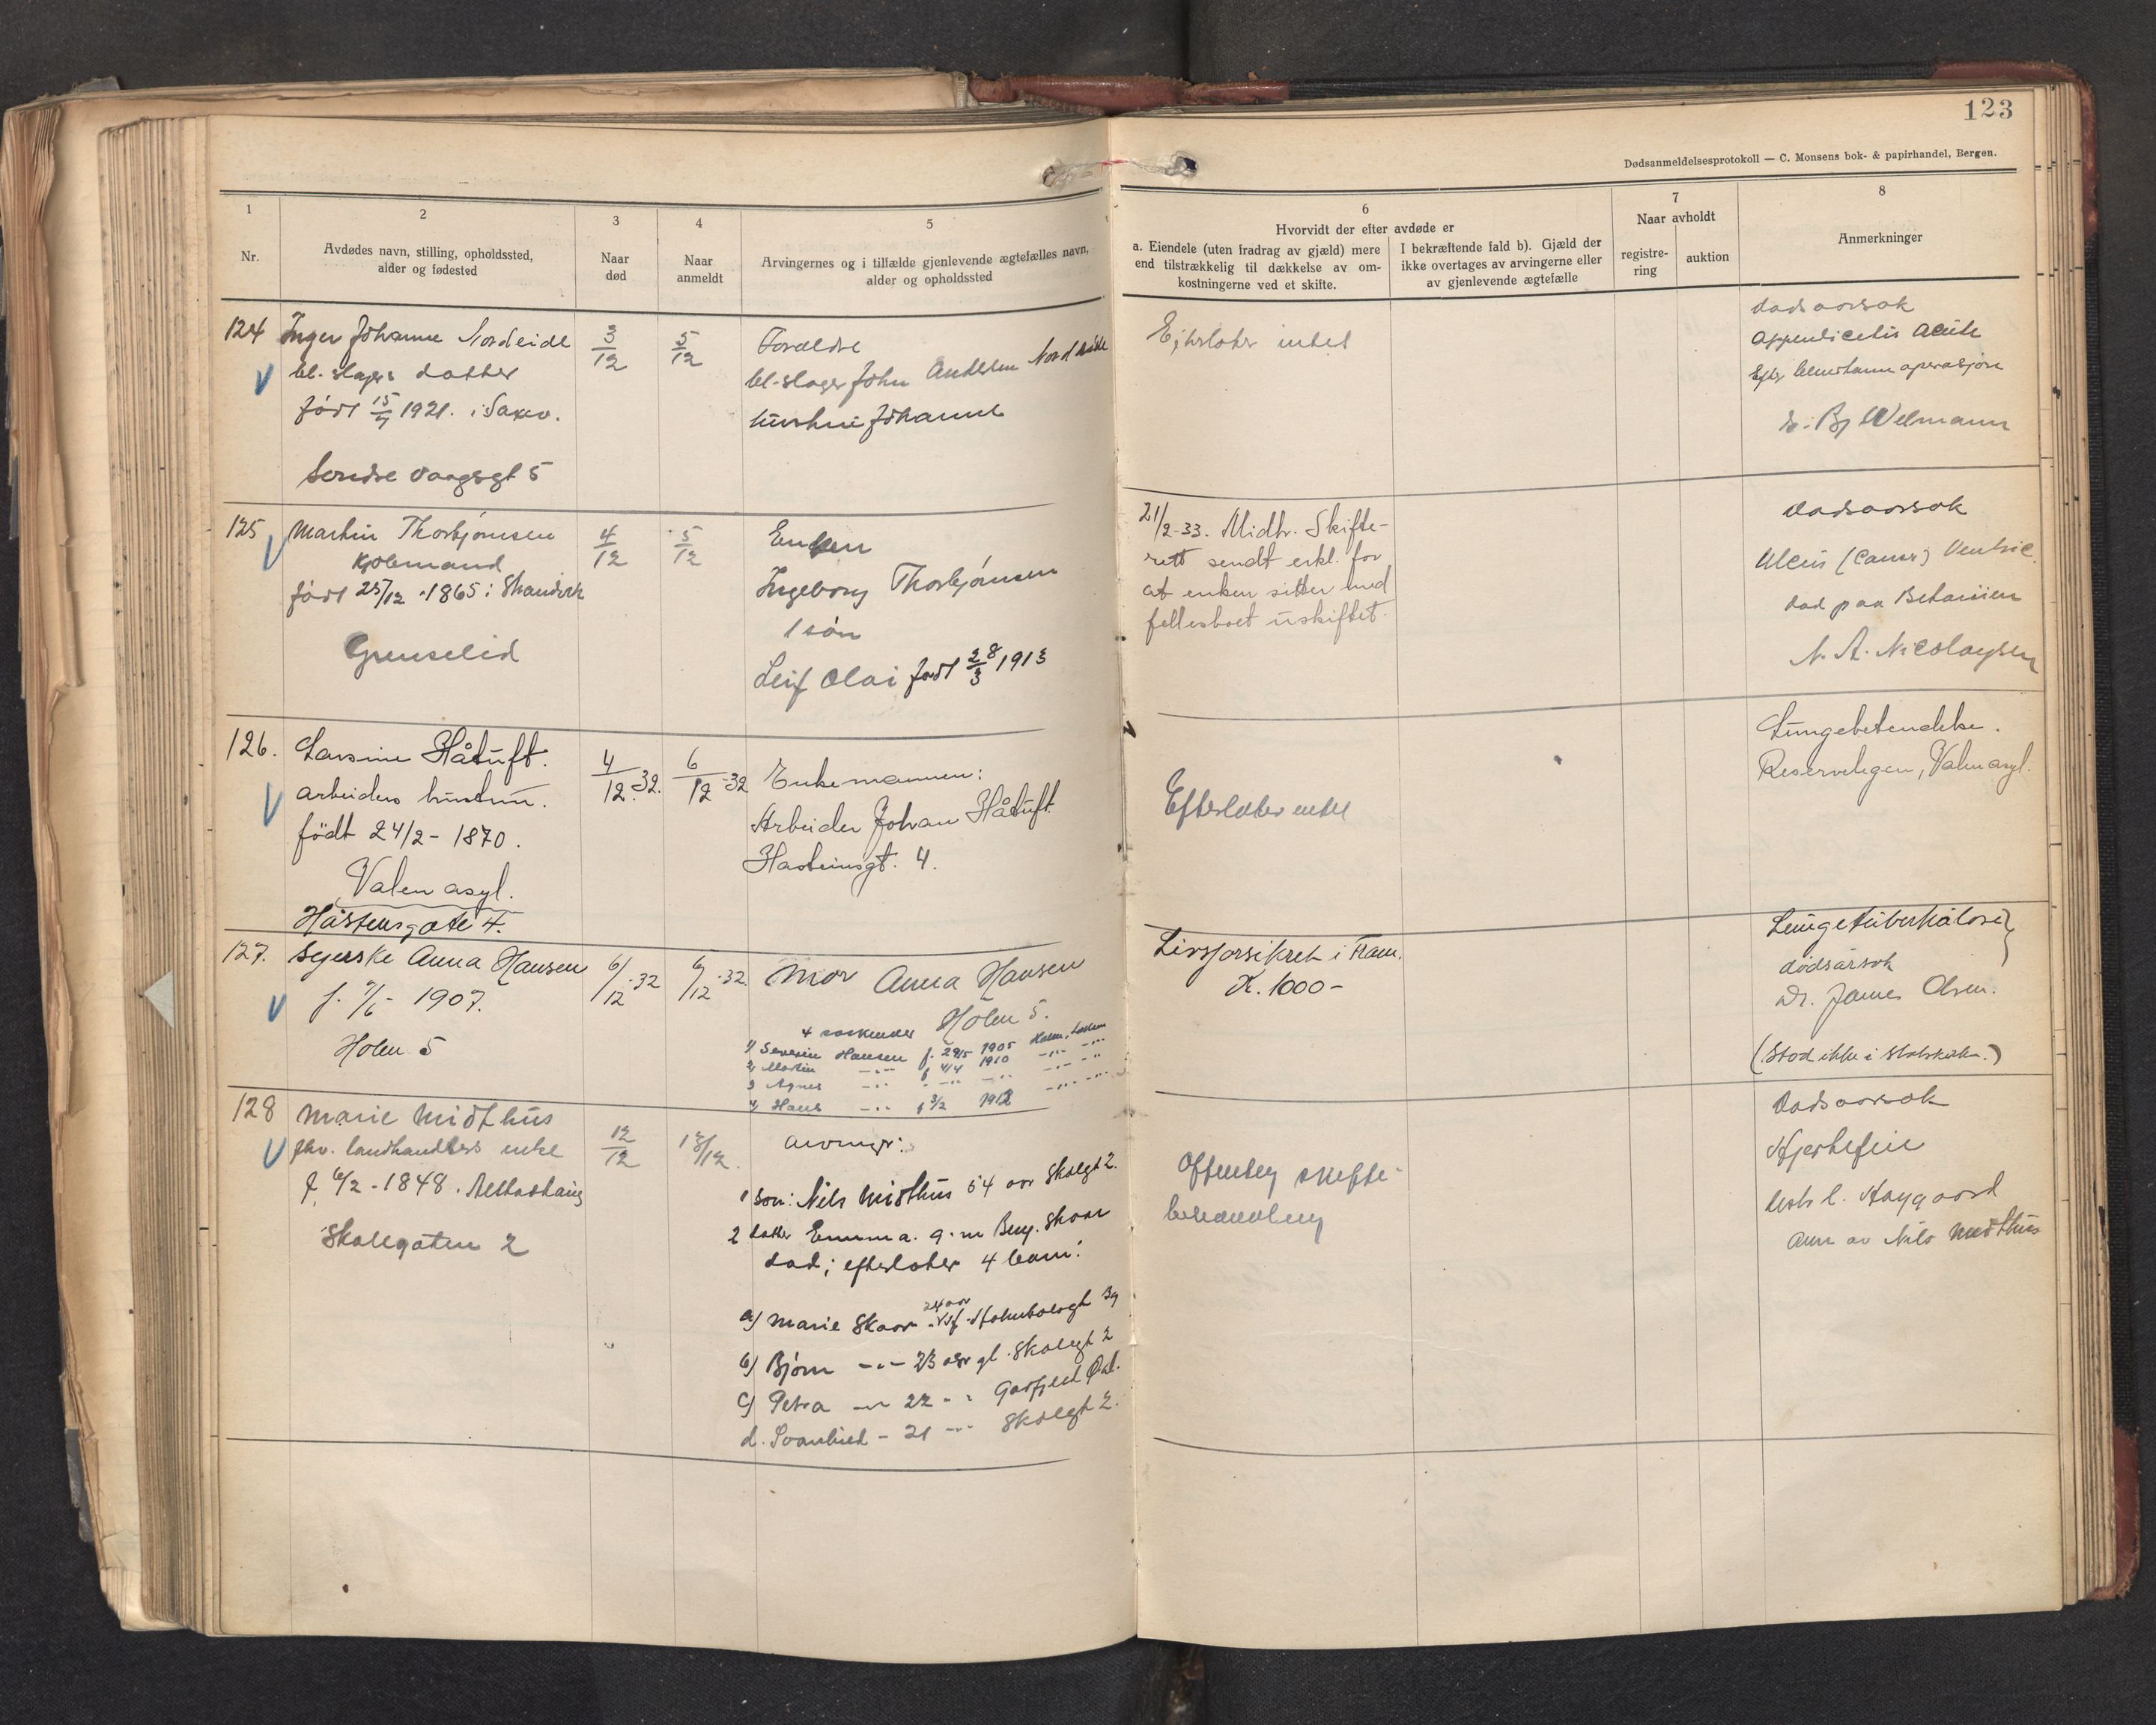 123
Dødsanmeldelsesprotokoll — C. Monsens bok- & papirhandel, Bergen.
1
Nr.
2
Avdødes navn, stilling, opholdssted,
alder og fødested
3
Naar
død
4
Naar
anmeldt
5
Arvingernes og i tilfælde gjenlevende ægtefælles navn,
alder og opholdssted
6
Hvorvidt der efter avdøde er
a. Eiendele (uten fradrag av gjæld) mere
end tilstrækkelig til dækkelse av om-
kostningerne ved et skifte.
I bekræftende fald b). Gjæld der
ikke overtages av arvingerne eller
av gjenlevende ægtefælle
7
Naar avholdt
registre-
ring
auktion
8
Anmerkninger
124
Inger Johanne Nordeide
datter
født 15/7 1921.
Sondre Vaagsgt 5
3/12
5/12
Foreldre
John Andersen Nordeide
hustru Johanne
Efterlater intet
dødsaarsok
Appendicitis Acute
operasjon
125
Martin Thorbjørnsen
født 25/12 1865 i
4/12
5/12
Enken
Ingeborg Thorbjørnsen
1 søn
Leif Olai født 28/3 1913
21/2-33. Midhr. Skifte-
rett sendt erkl. for
at enken sitter med
fellesboet uskiftet.
dødsaarsok
Ulcus (Cancr) Ventric.
død paa Betanien
N. A. Nicolaysen
126.
Larsine Håtuft.
arbeiders hustru.
født 24/2 - 1870.
Valen asyl.
Håsteinsgate 4.
4/12-32.
6/12-32
Enkemannen:
Arbeider Johan Håtuft
Hasteinsgt. 4.
Efterlater intet
Lungebetendelse.
Reservelegen, Valen asyl.
127.
Syerske Anna Hansen
f. 7/6 - 1907.
Holen 5
6/12-32
6/12-32.
Mor Anna Hansen
Holen 5.
4 søskender
1) Severin Hansen f. 29/5 1905
2) Martin -"- f 4/4 1910 -"-
3 Agnes -"- -"- -"-
4) Hans -"- f 3/2 1912 -"-
Livsforsikret i Fram.
Kr. 1000-
Lungetuberkulose
dødsårsok
Dr. James Olsen.
(Stod ikke i
128
Marie Midthus
fhv. landhandlers enke
f. 6/2 - 1848.
Skolegaten 2
12/12
13/12.
Arvinger:
1 Søn: Nils Midthus 54 aar Skolegt 2.
2 datter Emma. g. m Skaar
død; efterlater 4 barn:
a) Marie Skaar 24 aar
b) Bjørn -"- 23 aar gl. Skolegt 2
c) Petra -"- 22 -"-
d. Svanhild - 21 -"- Skolegt 2.
Offentlig skifte-
behandling
dødsaarsok
Hjertefeil
anm av Nils Midthus